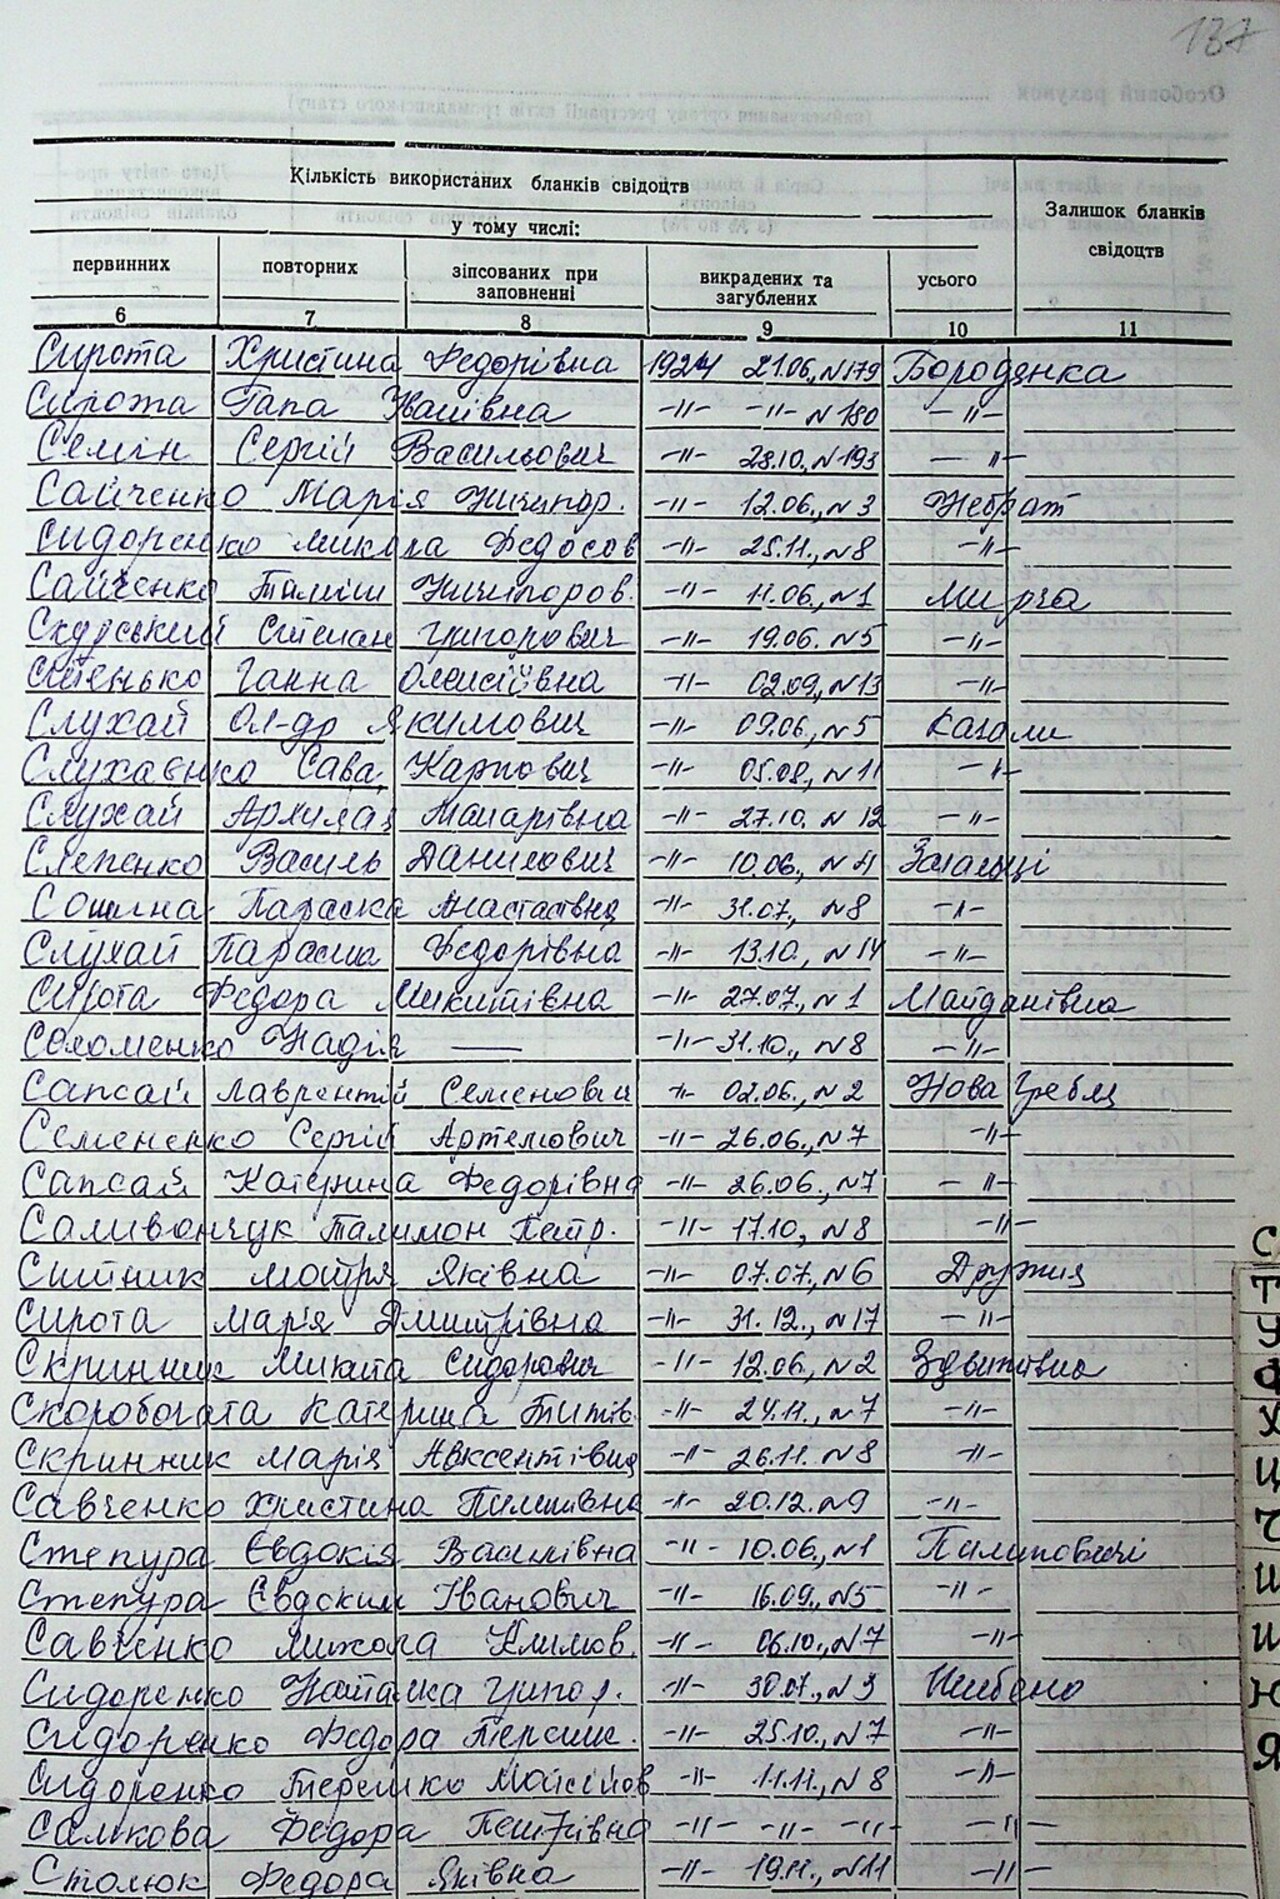 137
Кількість використаних бланків свідоцтв
Залишок бланків свідоцтв
у тому числі:
первинних повторних зіпсованих при заповненні викрадених та загублених усього
6 7 8 9 10 11
Сирота Христина Федорівна 1924 21.06., N179 Бородянка
Сирота Гапа Іванівна -"- -"- N 180 -"-
Семін Сергій Васильович -"- 28.10., N193 -"-
Сайченко Марія Ничипор. -"- 12.06., N 3 Небрат
Сидоренко Микола Федосов -"- 25.11., N8 -"-
Сайченко Ничипоров. -"- 11.06., N1 Мирча
Скурський Степан Григорович -"- 19.06. N5 -"-
Ганна Олексіївна -"- 02.09., N13 -"-
Слухай Ол-др Якимович -"- 09.06., N5 Качали
Слухаєнко Сава Карпович -"- 05.08., N11 -"-
Слухай Макарівна -"- 27.10. N 12 -"-
Слепенко Василь Данилович -"- 10.06., N 4 Загальці
Параска Анастасівна -"- 31.07., N8 -"-
Слухай Параска Федорівна -"- 13.10., N 14 -"-
Сирота Федора Микитівна -"- 27.07., N 1 Майданівка
Соломенко Надія — -"- 31.10., N8 -"-
Сапсай Лаврентій Семенович -"- 02.06., N 2 Нова Гребля
Семененко Сергій Артемович -"- 26.06., N7 -"-
Сапсай Катерина Федорівна -"- 26.06., N7 -"-
Саливончук Палимон Петр. -"- 17.10, N8 -"-
Ситник Мотря Яківна -"- 07.07., N6 Дружня
Сирота Мар'я Дмитрівна -"- 31.12., N17 -"-
Скринник Микита Сидорович -"- 12.06., N2 Здвижівка
Скоробогата Катерина Титів. -"- 24.11., N7 -"-
Скринник Марія Авксентівна -"- 26.11. N8 -"-
Савченко Христина Пилипівна -"- 20.12. N9 -"-
Степура Євдокія Василівна -"- 10.06., N1 Пилиповичі
Степура Євдоким Іванович -"- 16.09., N5 -"-
Савченко Микола Климов. -"- 06.10., N7 -"-
Сидоренко Наталка Григор. -"- 30.07., N3 Шибено
Сидоренко Федора -"- 25.10., N7 -"-
Сидоренко Терешко Мойсійов -"- 11.11., N 8 -"-
Салкова Федора Петрівна -"- -"- -"- -"-
Столюк Федора Яківна -"- 19.11., N11 -"-
С
Т
У
Ф
Х
Ц
Ч
Ш
Щ
Ю
Я